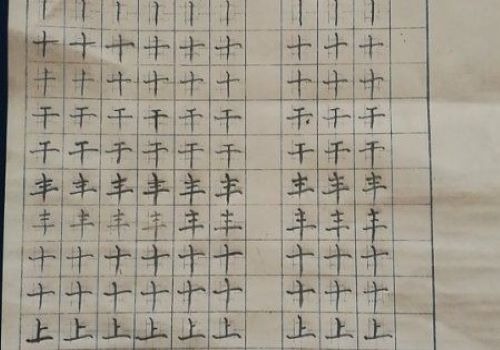 十十十十十十 十十十
十十十十十十 十十十
干干干干干干 干干干
干干干干干干 干干干
丰丰丰丰丰丰 丰丰丰
丰丰丰丰丰丰 丰丰丰
十十十十十十 十十十
十十十十十十 十十十
上上上上上上 上上上